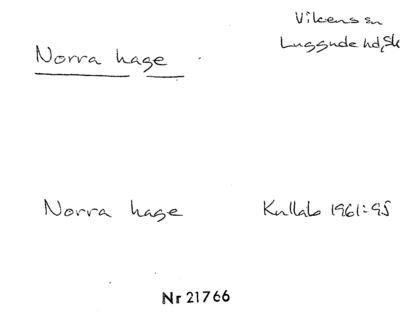 Vikens sn
Luggude hd, Sk
Norra hage
Norra hage Kullab 1961:95
Nr 21766